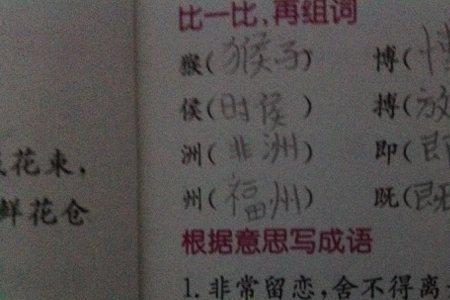 花束，
鲜花仓
比一比，再组词
猴（猴子） 博（
侯（时侯） 搏（
洲（非洲） 即（
州（福州） 既（
根据意思写成语
1.非常留恋，舍不得离